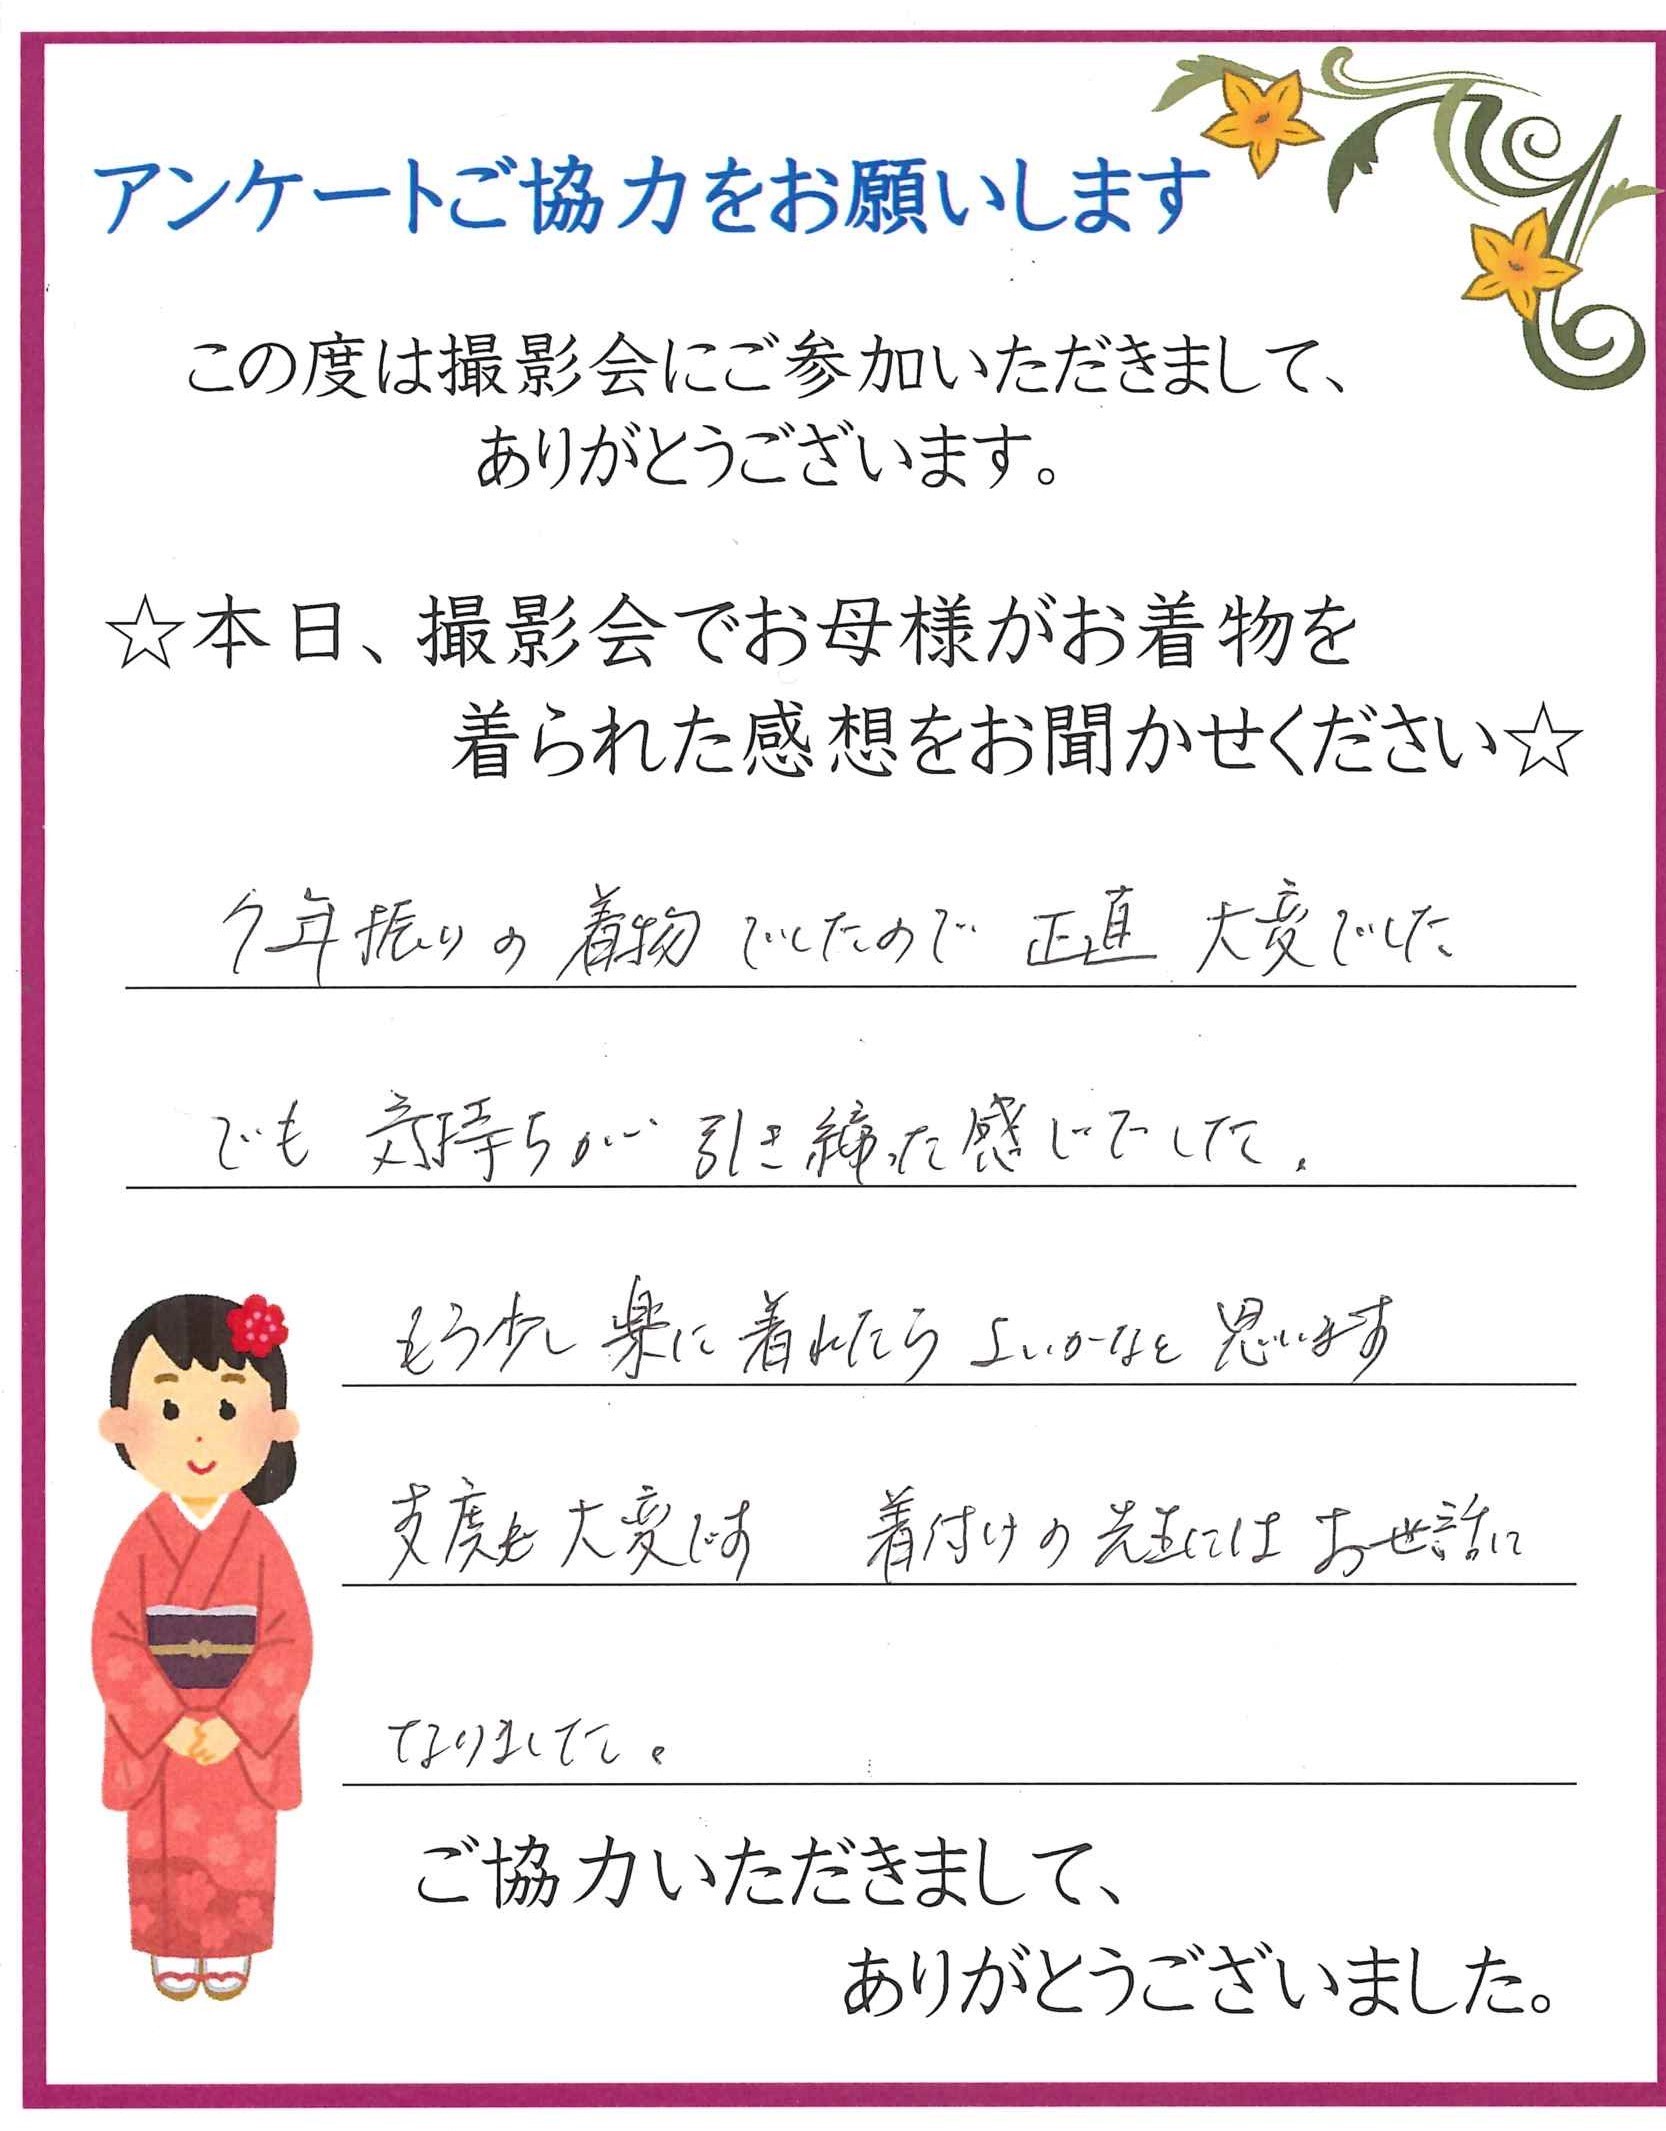 アンケートご協力をお願いします
この度は撮影会にご参加いただきまして、
ありがとうございます。
☆本日、撮影会でお母様がお着物を
着られた感想をお聞かせください☆
年振りの着物でしたので 正直 大変でした
でも 気持ちが 引き締った感じでした。
もう少し 楽に 着れたら よいかなと 思います
支度も大変です 着付けの先生にはお世話に
なりました。
ご協力いただきまして、
ありがとうございました。